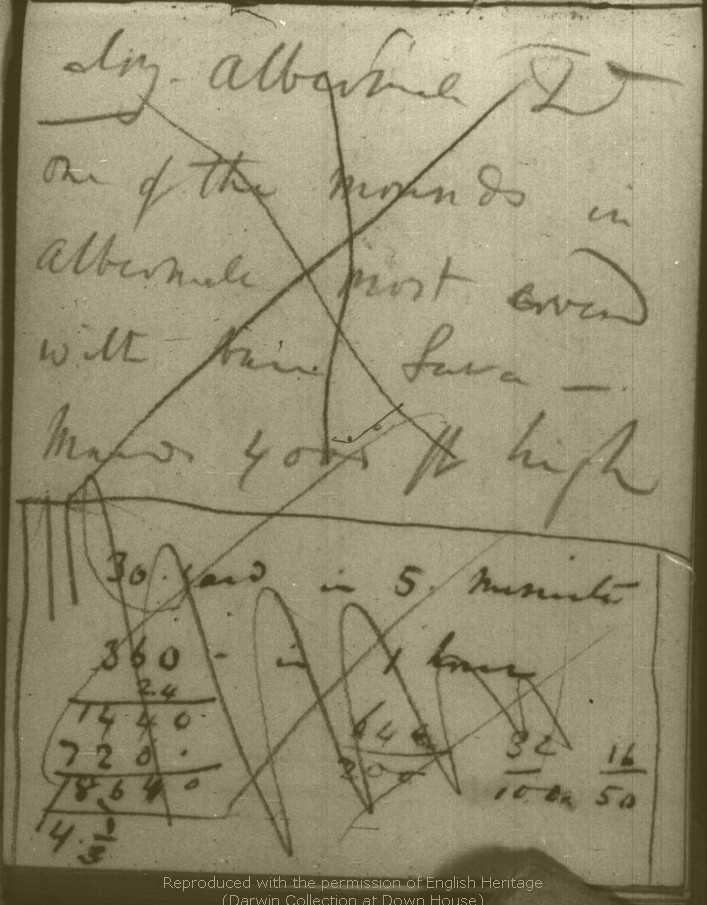 Albemarle Id
one of the mounds in
Albemarle most covered
with bare Lava —
Mounds 4000 ft high
30 yard in 5 minutes
360 - in 1 hour
24
1440
720.
8640
4 1/3
64
200
32
100
16
50
Reproduced with the permission of English Heritage
(Darwin Collection at Down House)